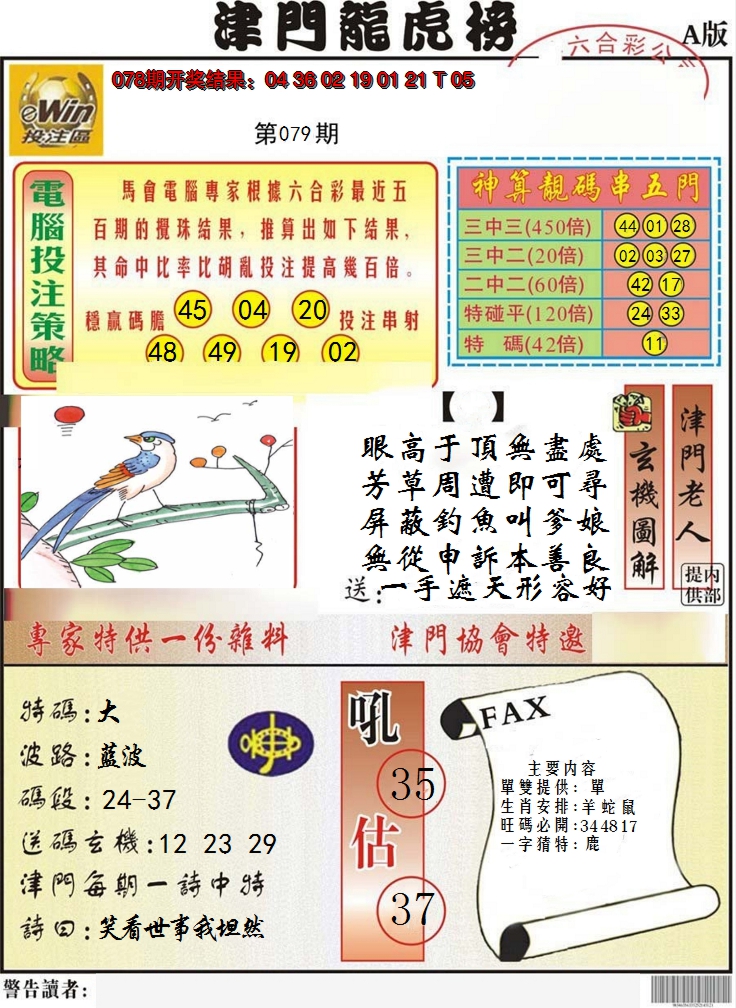 津門龍虎榜
A版
六合彩公
078期开奖结果：04 36 02 19 01 21 T 05
eWin
投注區
第079期
電腦投注策略
馬會電腦專家根據六合彩最近五
百期的攪珠结果，推算出如下结果，
其命中比率比胡亂投注提高幾百倍。
穩赢碼膽 45 04 20 投注串射
48 49 19 02
神算靚碼串五門
三中三(450倍) 44 01 28
三中二(20倍) 02 03 27
二中二(60倍) 42 17
特碰平(120倍) 24 33
特 碼(42倍) 11
【 】
眼高于頂無盡處
芳草周遭即可尋
屏蔽釣魚叫爹娘
無從申訴本善良
送：一手遮天形容好
玄機圖解
津門老人
内部提供
專家特供一份雜料
津門協會特邀
特碼:大
波路:藍波
碼段:24-37
送碼玄機:12 23 29
津門每期一詩中特
詩曰:笑看世事我坦然
吼
35
估
37
FAX
主要内容
單雙提供：單
生肖安排:羊蛇鼠
旺碼必開:344817
一字猜特：鹿
警告讀者：